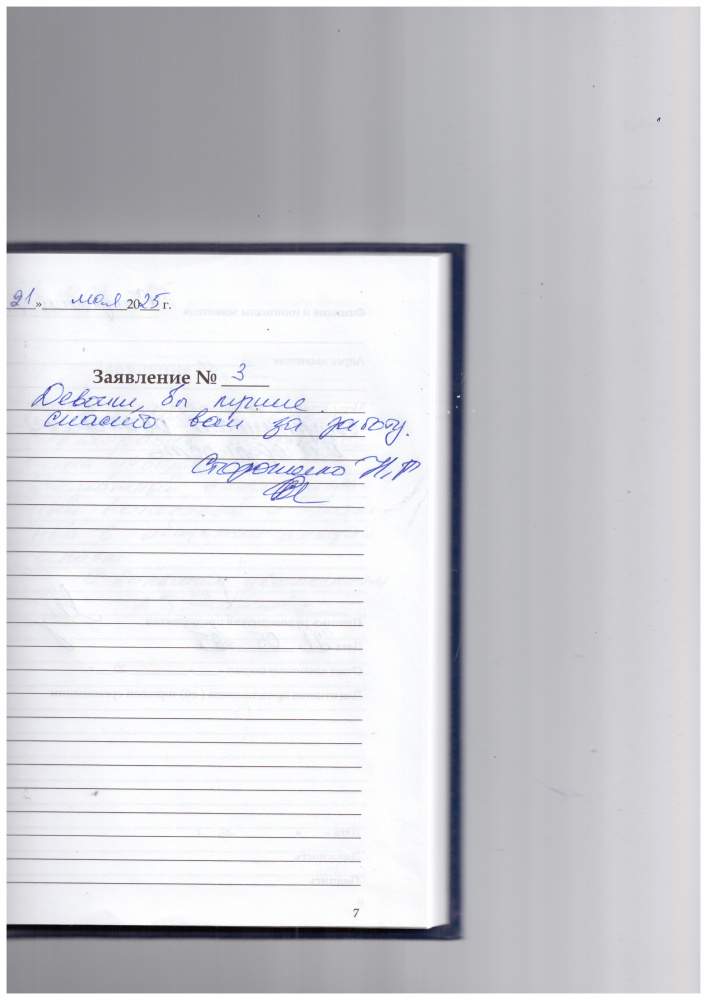 21 » мая 2025 г.
Заявление № 3
Девочки, вы лучшие.
спасибо вам за заботу.
Стороженко Н.Г
7